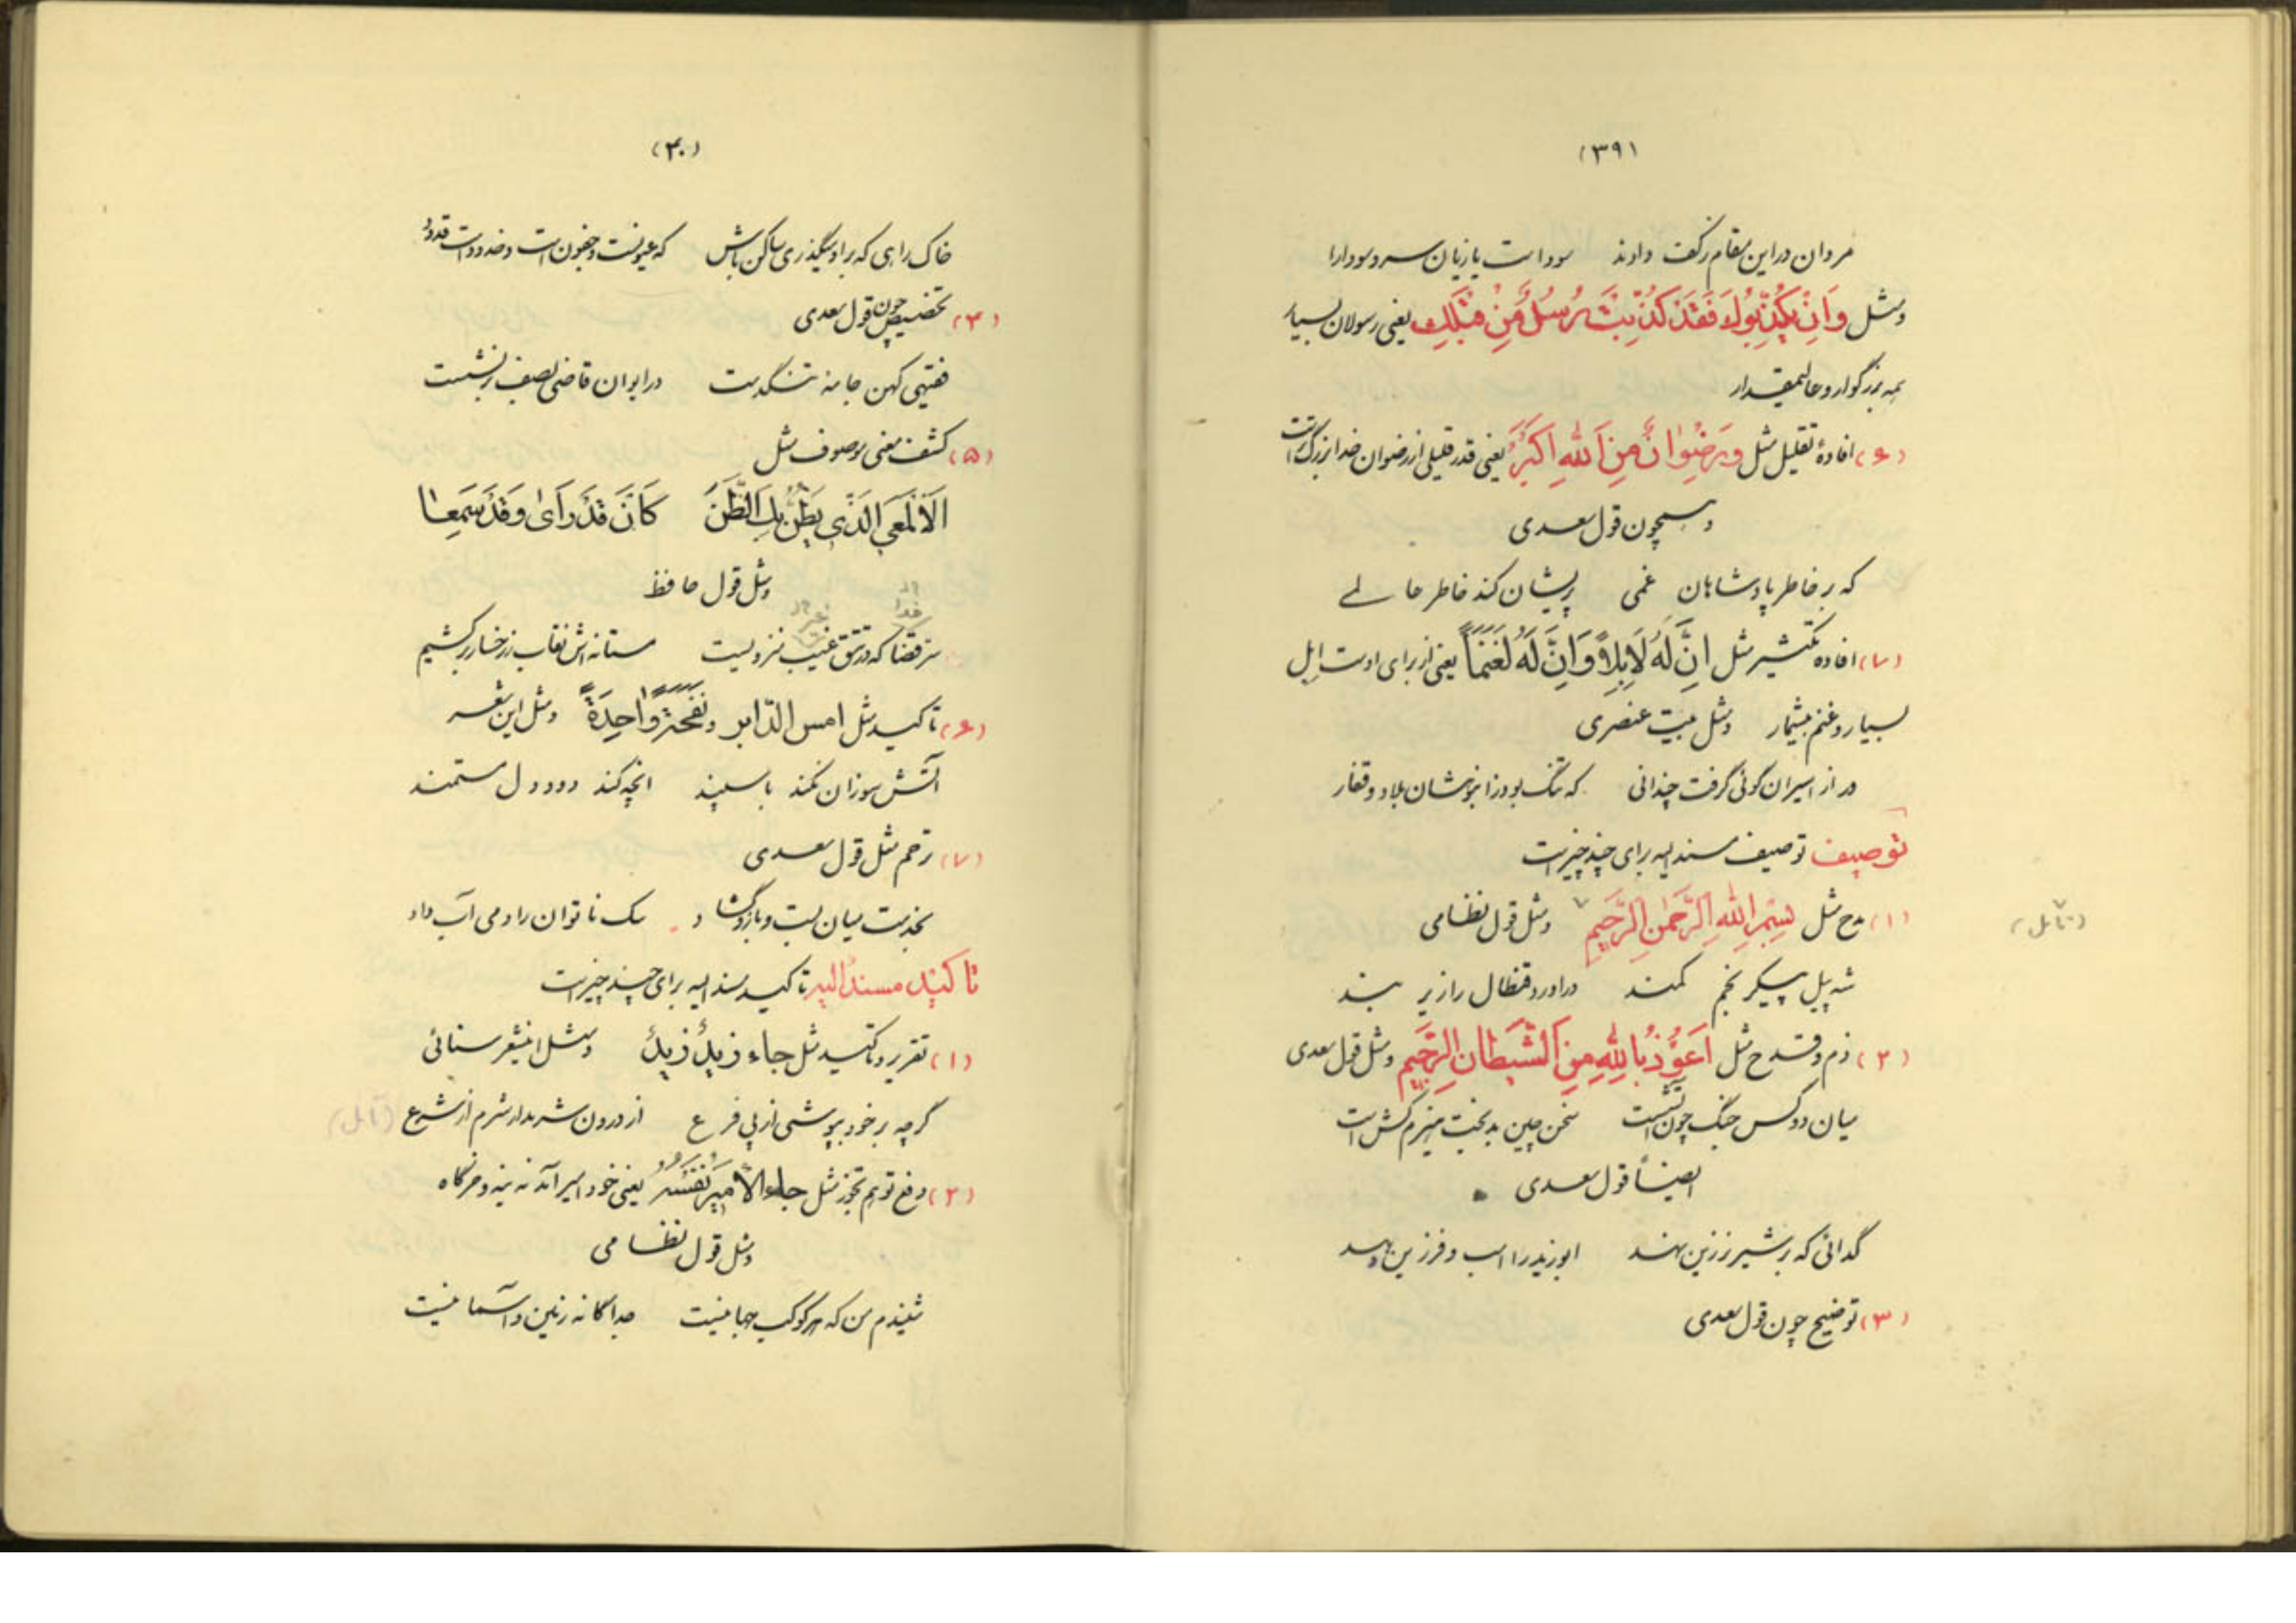 (۳۹)
مردان در این مقام زکف دادند سود است یا زیان سر و سودا را
و مثل وَاِنْ يُكَذِّبُوكَ فَقَدْ كُذِّبَتْ رُسُلٌ مِنْ قَبْلِكَ یعنی رسولان بسیار
همه بزرگوار و عالیمقدار
(۶) افادهٔ تقلیل مثل وَرِضْوانٌ مِنَ اللهِ اَكْبَرُ یعنی قدر قلیلی از رضوان خدا بزرگ است
و همچون قول سعدی
که بر خاطر پادشاهان غمی پریشان کند خاطر عالمی
(۷) افاده تکثیر مثل اِنَّ لَهُ لَاِبِلاً وَاِنَّ لَهُ لَغَنَماً یعنی از برای اوست ابل
بسیار و غنم بیشمار و مثل بیت عنصری
در از اسیران گوئی گرفت چندانی که تنگ بود ز انبوهشان بلاد و قفار
توصیف توصیف مسند الیه برای چند چیز است
(۱) مدح مثل بِسْمِ اللهِ الرَّحْمٰنِ الرَّحِيمِ و مثل قول نظامی
شه پیل پیکر بخم کمند در آورد قنطال را زیر بند
(۲) ذم و قدح مثل اَعُوذُ بِاللهِ مِنَ الشَّيْطانِ الرَّجِيمِ و مثل قول سعدی
میان دو کس جنگ چون آتش است سخن چین بدبخت هیزم کش است
ایضاً قول سعدی
گدائی که بر شیر نر زین نهد ابوزید را اسب و فرزین دهد
(۳) توضیح چون قول سعدی
(۴۰)
خاک راهی که بر او میگذری ساکن باش که عیونست و جفون است و خدود است و قدود
(۴) تخصیص چون قول سعدی
فقیهی کهن جامهٔ تنگدست در ایوان قاضی بصف بر نشست
(۵) کشف معنی موصوف مثل
اَلْاَلْمَعِيُّ الَّذِي يَظُنُّ بِكَ الظَّنَّ كَاَنْ قَدْ رَاٰى وَقَدْ سَمِعا
و مثل قول حافظ
سر قضا که در تتق غیب منزویست مستانه اش نقاب ز رخسار بر کشیم
(۶) تأکید مثل امس الدّابر و نَفْخَةٌ واحِدَةٌ و مثل این شعر
آتش سوزان نکند با سپند انچه کند دود دل مستمند
(۷) ترحم مثل قول سعدی
بخدمت میان بست و بازو گشاد سگ ناتوان را دمی آب داد
تاکید مسند الیه تاکید مسند الیه برای چند چیز است
(۱) تقریر و تاکید مثل جاء زَيْدٌ زَيْدٌ و مثل این شعر سنائی
گرچه بر خود بپوشی از پی فرع از درون شرمدار شرم از شرع
(۲) دفع توهم تجوز مثل جاء الاَميرُ نَفْسُهُ یعنی خود امیر آمد نه بنه و خرگاه
و مثل قول نظامی
شنیدم من که هر کوکب جهانیست جداگانه زمین و آسمانیست